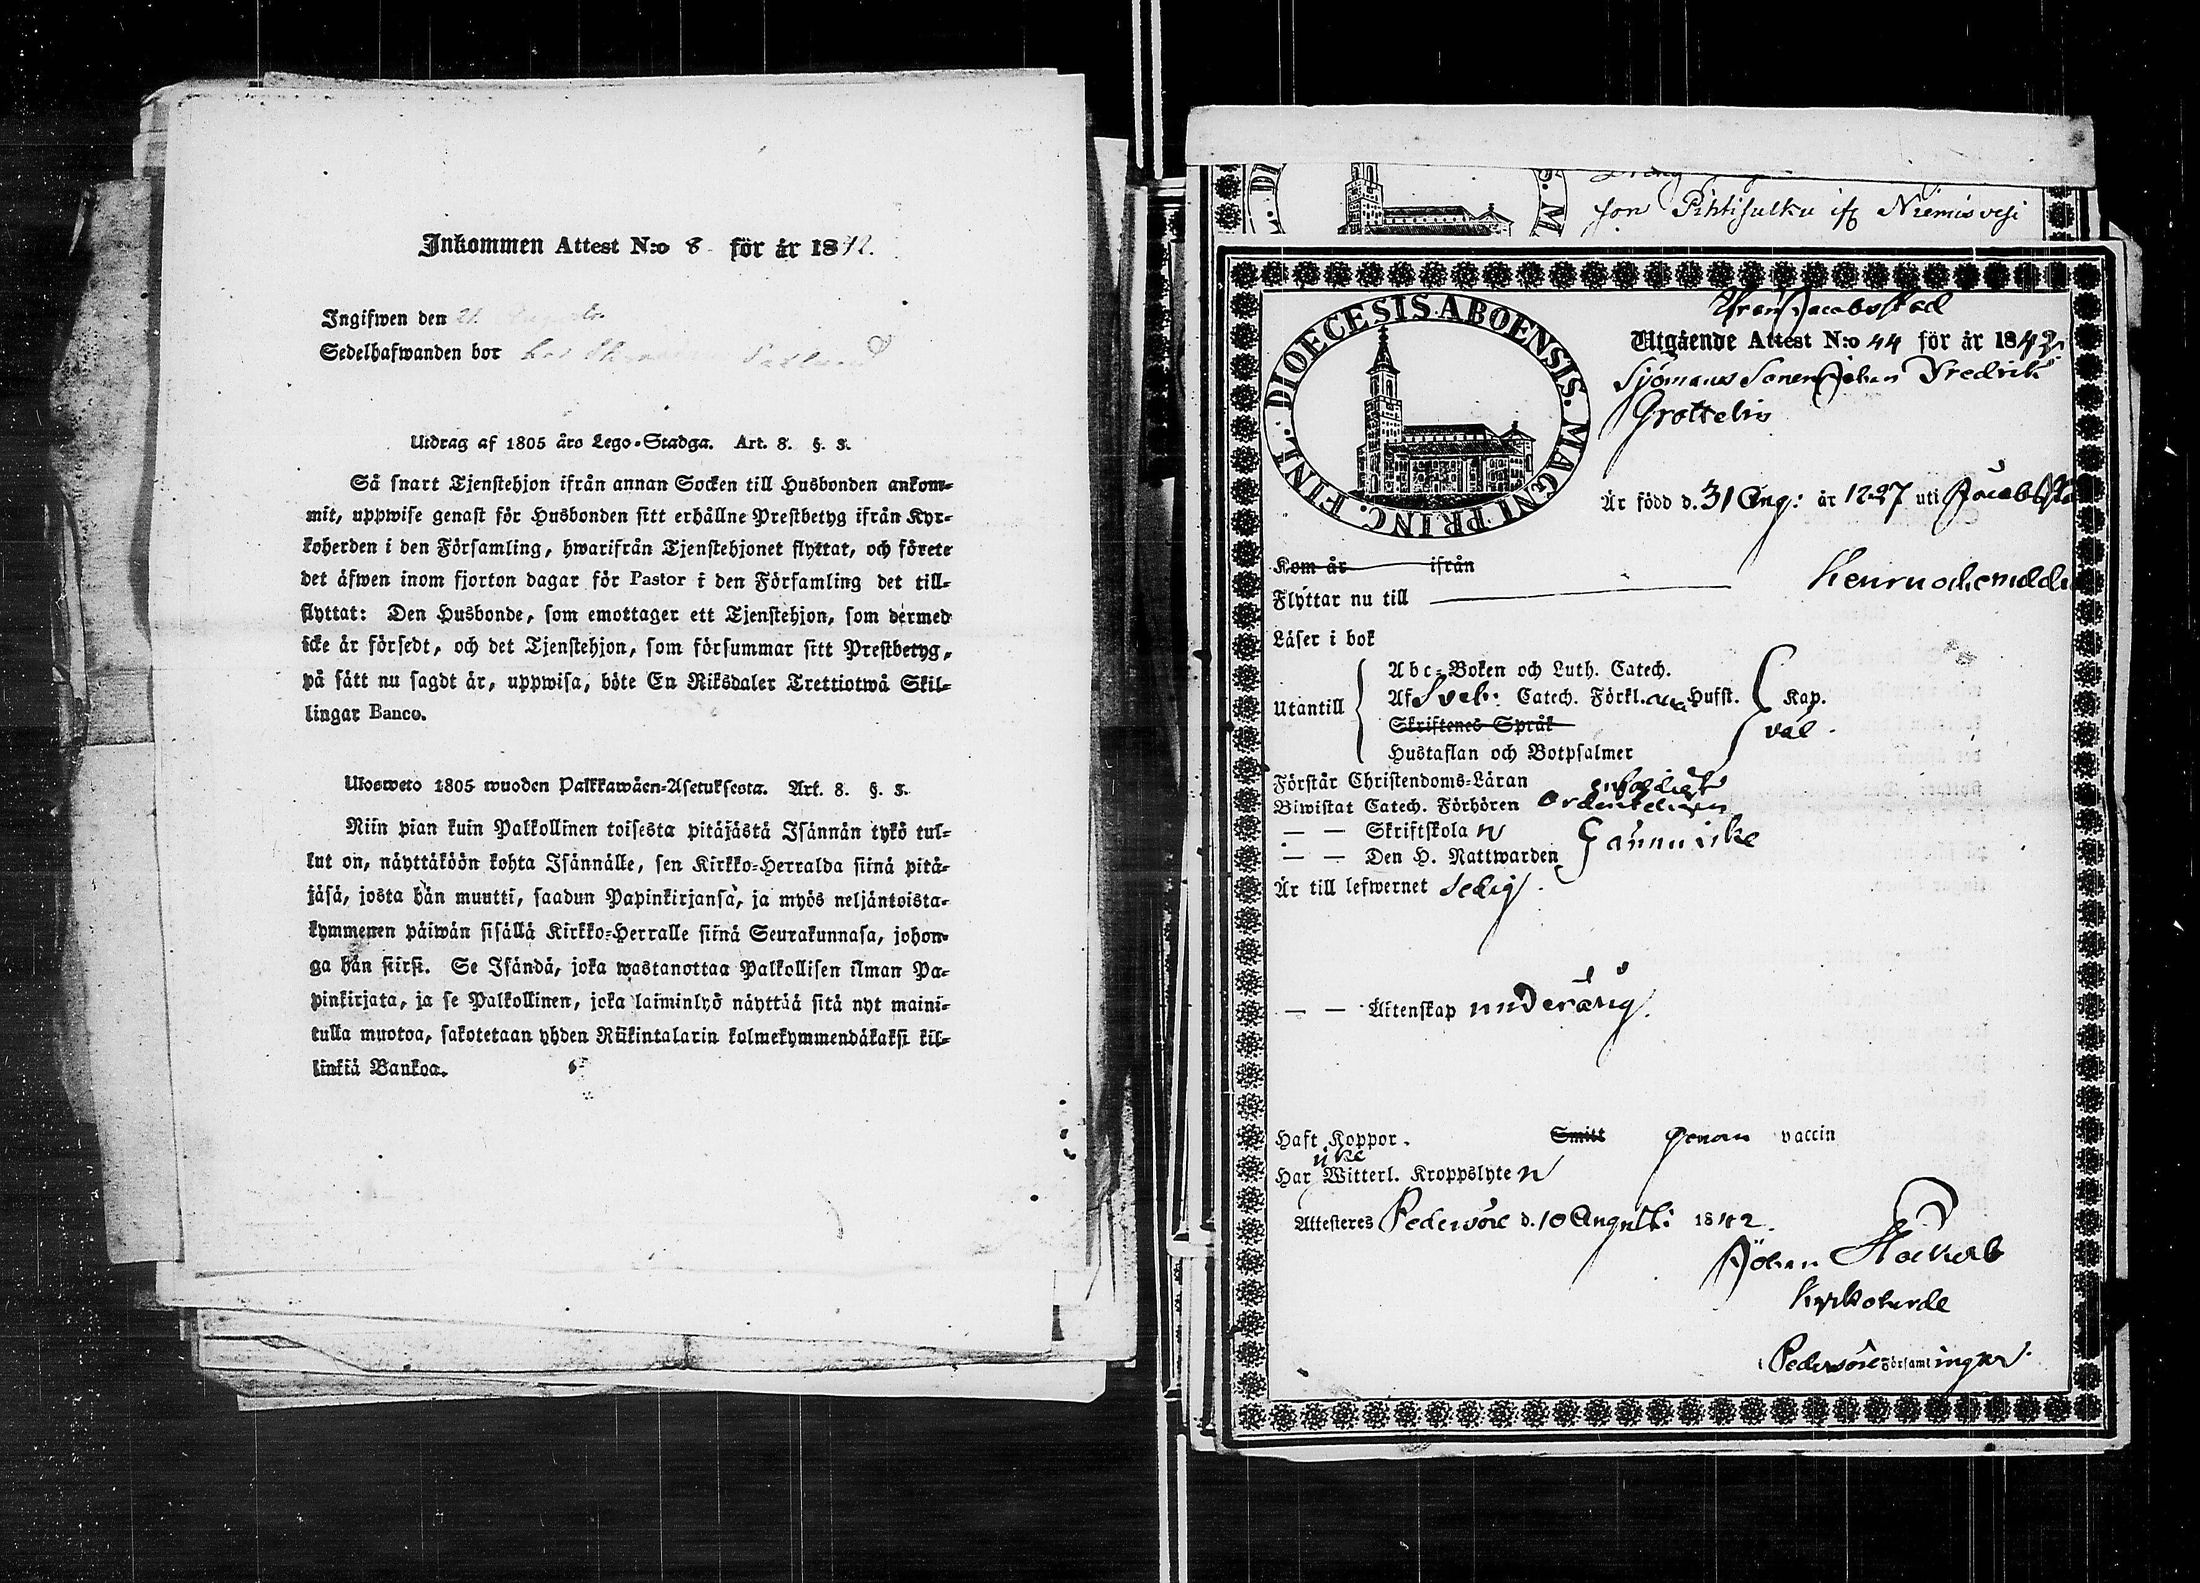 Inkommen Attest N:o 8 för år 1842.
Ingifwen den 21 Augusti
Sedelhafwanden bor hos
Utdrag af 1805 års Lego-Stadga. Art. 8. §. 3.
Så snart Tjenstehjon ifrån annan Socken till Husbonden ankom-
mit, uppwise genast för Husbonden sitt erhållne Prestbetyg ifrån Kyr-
koherden i den Församling, hwarifrån Tjenstehjonet flyttat, och förete
det äfwen inom fjorton dagar för Pastor i den Församling det till-
flyttat: Den Husbonde, som emottager ett Tjenstehjon, som dermed
icke är försedt, och det Tjenstehjon, som försummar sitt Prestbetyg,
på sätt nu sagdt är, uppwisa, böte En Riksdaler Trettiotwå Skil-
lingar Banco.
Ulosweto 1805 wuoden Palkkawäen-Asetuksesta. Art. 8. §. 3.
Niin pian kuin Palkollinen toisesta pitäjästä Isännän tykö tul-
lut on, näyttäköön kohta Isännälle, sen Kirkko-Herralda siinä pitä-
jäsä, josta hän muutti, saadun Papinkirjansa, ja myös neljäntoista-
kymmenen päiwän sisällä Kirkko-Herralle siinä Seurakunnasa, johon-
ga hän siirsi. Se Isändä, joka wastanottaa Palkollisen ilman Pa-
pinkirjata, ja se Palkollinen, joka laiminlyö näyttää sitä nyt maini-
tulla muotoa, sakotetaan yhden Riikintalarin kolmekymmendäkaksi kil-
linkiä Bankoa.
son Pihtisulku ifr Niemisvesi
DIOECESIS ABOENSIS. MAGNI PRINC. FINL.
Från Jacobstad
Utgående Attest N:o 44 för år 1842
Sjömans Sonen Johan Fredrik
Grottelin
Är född d. 31 Aug: år 1827 uti Jacobsta
Kom år ifrån
Flyttar nu till
Läser i bok
Utantill
Abc-Boken och Luth. Catech.
Af Sveb: Catech. Förkl. Hufst. Kap.
Skriftenes Språk väl.
Hustaflan och Botpsalmer
Förstår Christendoms-Läran enfaldigt
Biwistat Catech. Förhören Ordenteligen
— — Skriftskola n
— — Den H. Nattwarden ännu icke
Är till lefwernet sedig.
— — Äktenskap underårig.
Haft Koppor. Smitt genom vaccin
Har icke Witterl. Kroppslyte n
Attesteres Pedersöre d. 10 Augusti 1842.
Johan
Kyrkoherde
i Pedersöre Församlingar.